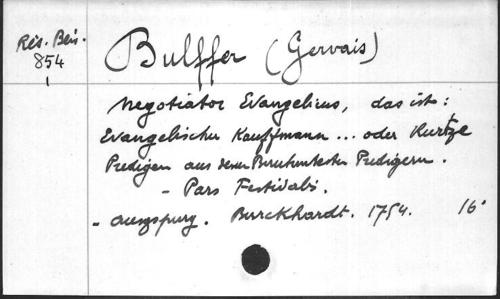 Rés. Bein.
854
1
Bulffer (Gervais)
Negotiator Evangelicus, das ist:
Evangelischer Kauffmann ... oder Kurtze
Predigen aus denen Beruhmtesten Predigern.
- Pars Festivalis.
- Augspurg. Burckhardt. 1754. 16°